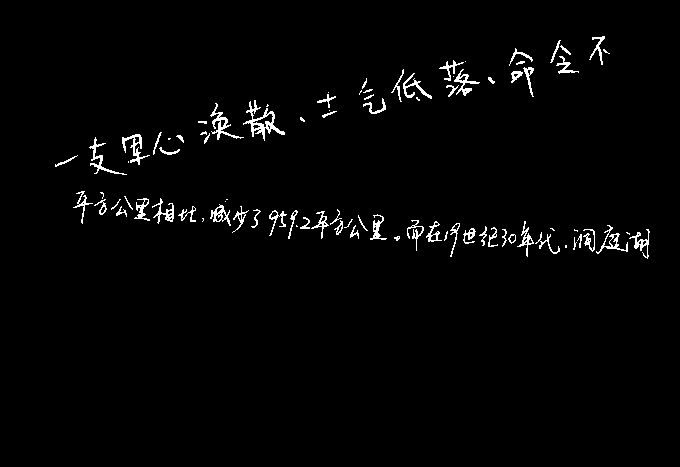 一支军心涣散、士气低落、命令不
平方公里相比,减少了959.2平方公里。而在19世纪30年代,洞庭湖